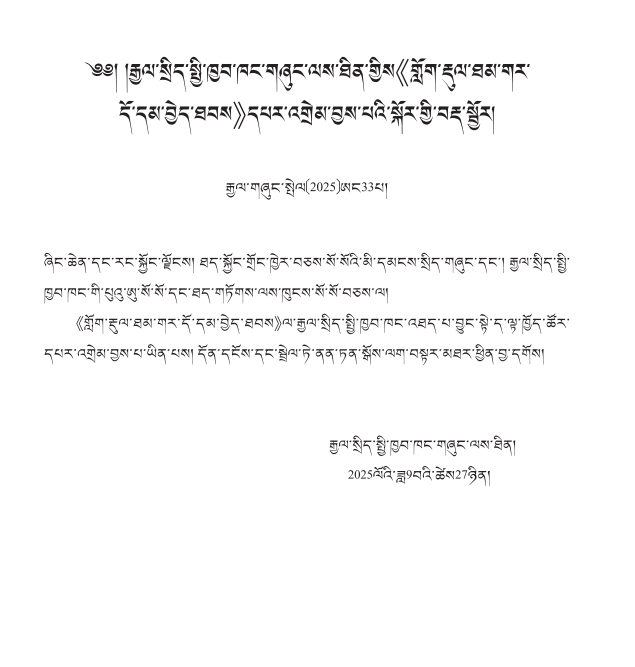 ༄༅། །རྒྱལ་སྲིད་སྤྱི་ཁྱབ་ཁང་གཞུང་ལས་ཐིན་གྱིས《གློག་རྡུལ་ཐམ་གར་
དོ་དམ་བྱེད་ཐབས》དཔར་འགྲེམ་བྱས་པའི་སྐོར་གྱི་བརྡ་སྦྱོར།
རྒྱལ་གཞུང་སྤེལ(2025)ཨང33པ།
ཞིང་ཆེན་དང་རང་སྐྱོང་ལྗོངས། ཐད་སྐྱོང་གྲོང་ཁྱེར་བཅས་སོ་སོའི་མི་དམངས་སྲིད་གཞུང་དང་། རྒྱལ་སྲིད་སྤྱི་
ཁྱབ་ཁང་གི་པུའུ་ཨུ་སོ་སོ་དང་ཐད་གཏོགས་ལས་ཁུངས་སོ་སོ་བཅས་ལ།
《གློག་རྡུལ་ཐམ་གར་དོ་དམ་བྱེད་ཐབས》ལ་རྒྱལ་སྲིད་སྤྱི་ཁྱབ་ཁང་འཐད་པ་བྱུང་སྟེ་ད་ལྟ་ཁྱོད་ཚོར་
དཔར་འགྲེམ་བྱས་པ་ཡིན་པས། དོན་དངོས་དང་སྦྲེལ་ཏེ་ནན་ཏན་སྒོས་ལག་བསྟར་མཐར་ཕྱིན་བྱ་དགོས།
རྒྱལ་སྲིད་སྤྱི་ཁྱབ་ཁང་གཞུང་ལས་ཐིན།
2025ལོའི་ཟླ9བའི་ཚེས27ཉིན།